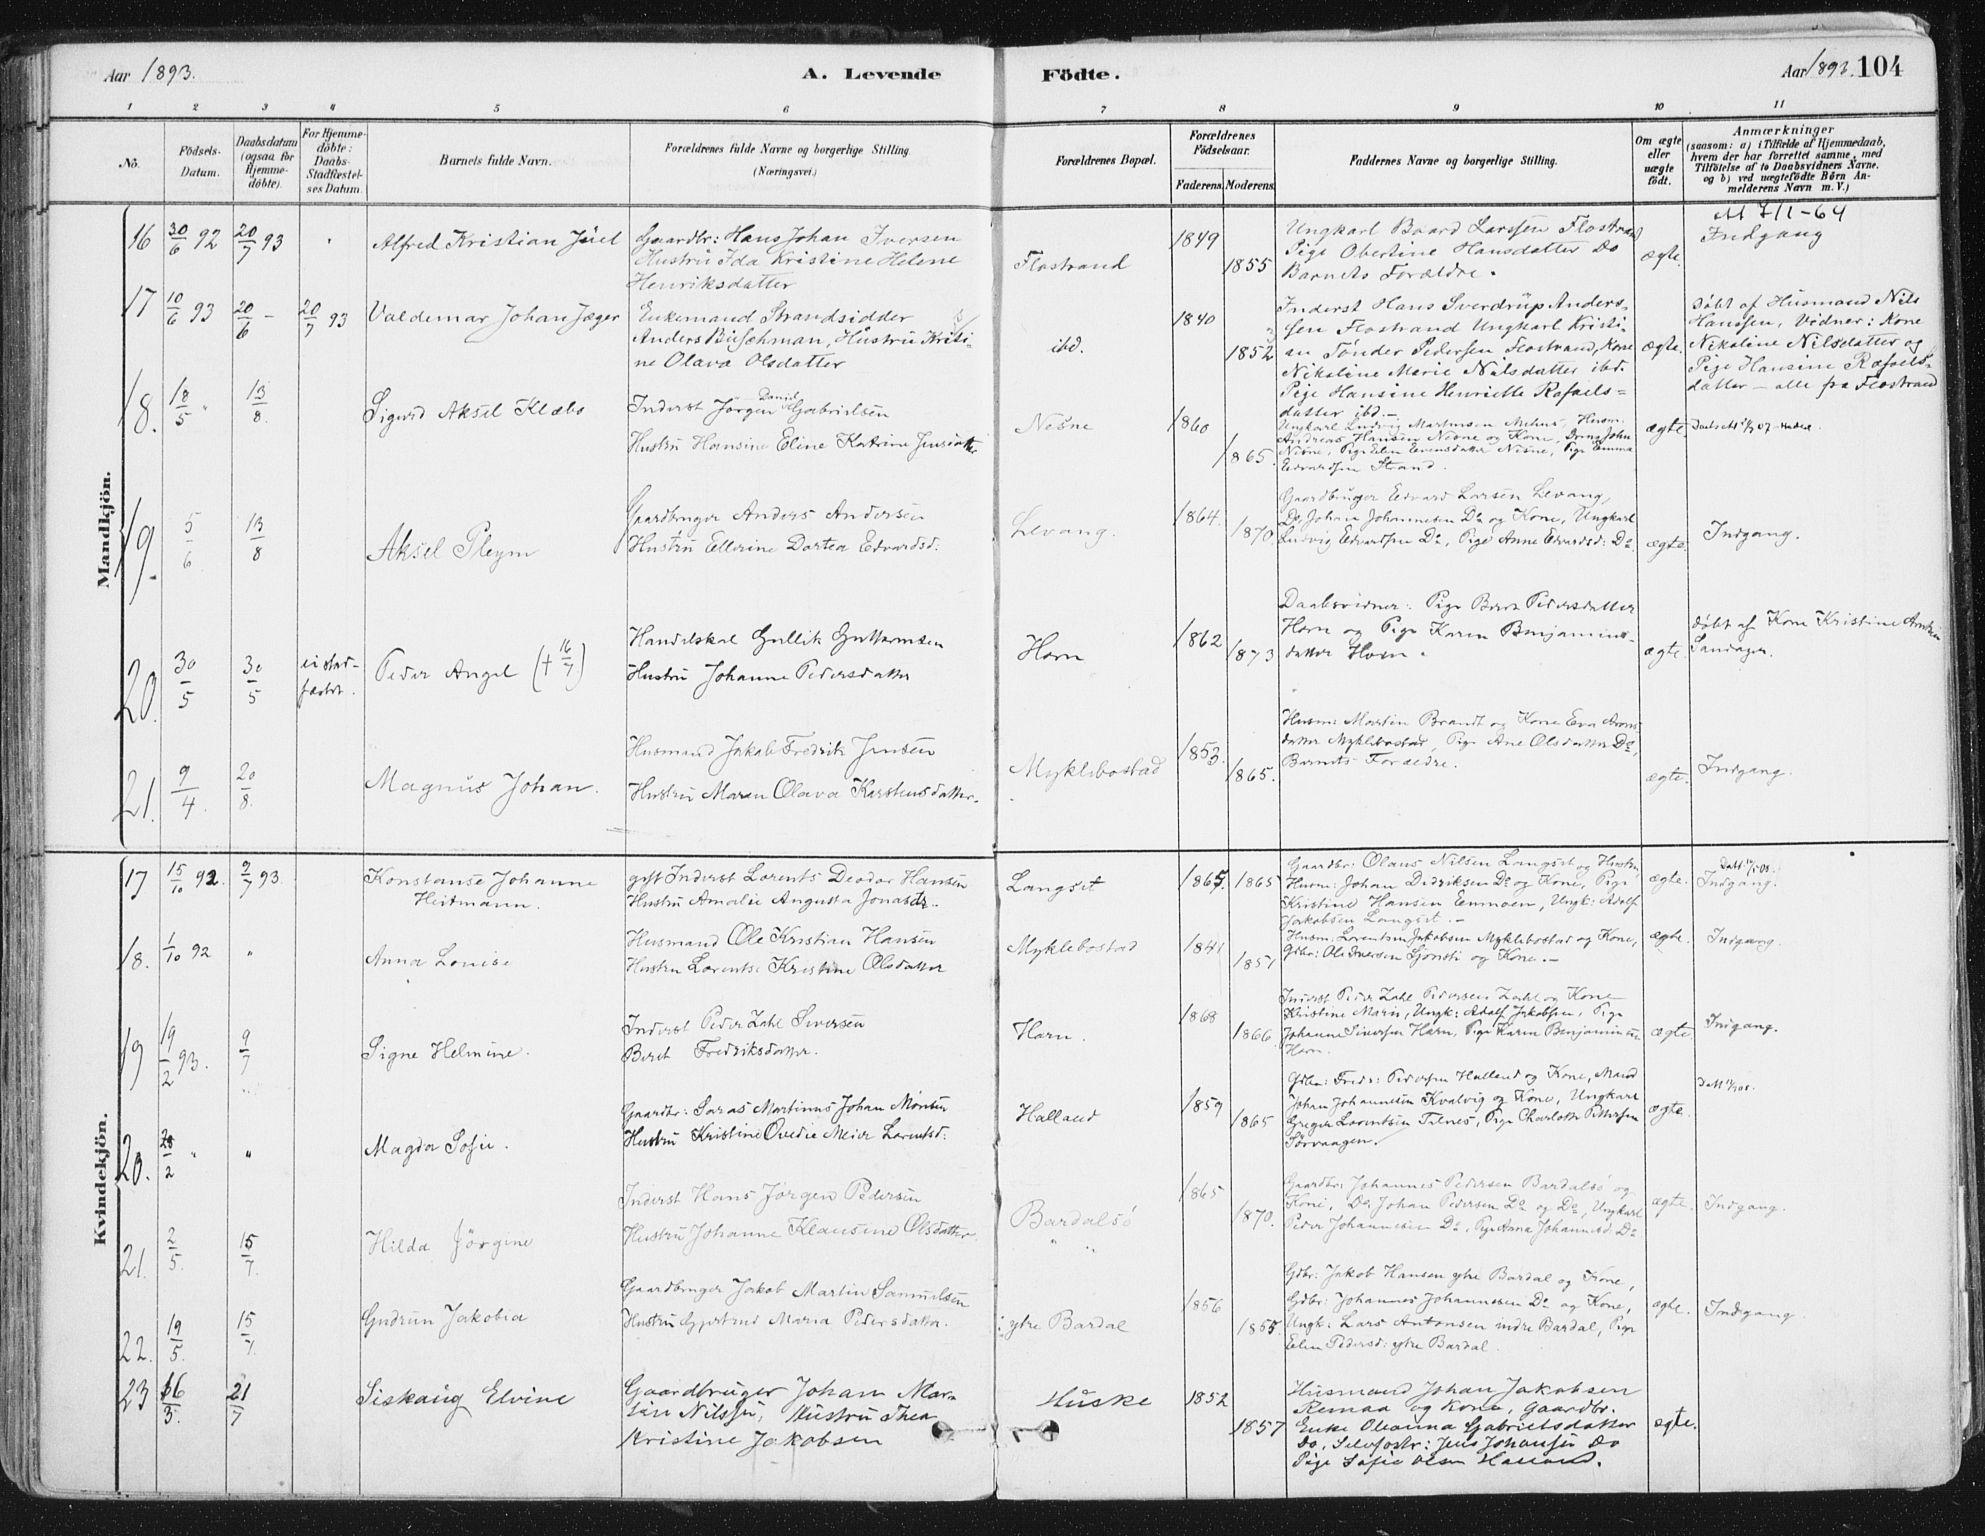 Aar 1893.
A. Levende
Födte.
Aar 1893. 104
1 2 3 4 5 6 7 8 9 10 11
No.
Födsels-
Datum.
Daabsdatum
(ogsaa for
Hjemme-
döbte).
For Hjemme-
döbte:
Daabs-
Stadfæstel-
ses Datum.
Barnets fulde Navn.
Forældrenes fulde Navne og borgerlige Stilling
(Næringsvei.)
Forældrenes Bopæl.
Forældrenes
Födselsaar.
Faderens. Moderens.
Faddernes Navne og borgerlige Stilling.
Om ægte
eller
uægte
födt.
Anmærkninger
(saasom: a) i Tilfælde af Hjemmedaab,
hvem der har forrettet samme, med
Tilföielse af to Daabsvidners Navne.
og b) ved uægtefödte Börn An-
melderens Navn m. V.)
Mandkjön.
16 30/6 92 20/7 93 " Alfred Kristian Juel
Gaardbr: Hans Johan Iversen
Hustru Ida Kristine Helene
Henriksdatter
Flostrand
1849
1855
Ungkarl Baard Larssen Flostrand
Pige Obertine Hansdatter Do
Barnets Forældre.
ægte.
Indgang
17 10/6 93 20/6 - 20/7 93 Valdemar Johan Jæger
Enkemand Strandsidder
Anders Buschman, Hustru Kristi-
ne Olava Olsdatter
ibd.
1840
1852
Inderst Hans Sverdrup Anders-
sen Flostrand Ungkarl Kristi-
an Tønder Pedersen Flostrand, Kone
Nikoline Marie Nilsdatter ibd.
Pige Hansine Henriette Rafaels-
datter ibd.-
ægte.
Døbt af Husmand Nils
Hanssen, Vidner: Kone
Nikoline Nilsdatter og
Pige Hansine Rafaels-
datter - alle fra Flostrand
18. 18/5 " 13/8. Sigurd Aksel Klæbo
Inderst Jørgen Daniel Gabrielsen
Hustru Hansine Eline Katrine Jensdatter
Nesne
1860
1865.
Ungkarl Ludvig Martinsen Husm:
Andreas Hansen Nesne og Kone,
Nesne, Pige Elen Nesne, Pige Emma
Edvardsen Strand.
ægte
19. 5/6 13/8 Aksel Pleym
Gaardbruger Anders Andersen
Hustru Ellerine Dortea Edvardsd:
Levang.
1864.
1870.
Gaardbruger Edvard Larsen Levang,
Do, Johan Johannesen Do og Kone, Ungkarl
Ludvig Edvardsen Do, Pige Anne Edvardsd: Do
ægte.
Indgang.
20. 30/5 30/5 ei stad-
fæstet. Peder Angel (+ 16/7)
Handelskal Gullik Guttormsen
Hustru Johanne Pedersdatter
Horn
1862
1873
Daabsvidner: Pige Berit Pedersdatter
Horn og Pige Karen Benjamins-
datter Horn.
ægte.
døbt af Kone Kristine
Sandager.
21. 9/4. 20/8 Magnus Johan.
Husmand Jakob Fredrik Jensen
Hustru Maren Olava Karstensdatter.
Myklebostad
1853.
1865.
Husm: Martin Brandt og Kone Eva Arons
datter Myklebostad, Pige Ane Olsdatter Do,
Barnets Forældre.
ægte.
Indgang.
Kvindekjön.
17 15/10 92. 9/7 93. Konstanse Johanne
Heitmann.
gift Inderst Lorents Deodor Hansen
Hustru Amalie Angusta Jonasdr.
Langset
1865 1865
Gaardbr: Olaus Nilsen Langset og Hustru
Husm: Johan Didriksen Do og Kone, Pige
Kristine Hansen Enmoen, Ungk: Adolf
Jakobsen Langset.-
ægte.
Indgang.
18. 1/10 92 " Anna Louise
Husmand Ole Kristian Hansen
Hustru Lorentse Kristine Olsdatter
Myklebostad
1841
1851
Husm: Lorentsen Jakobsen Myklebostad og Kone,
Gdbr: Ole Iversen Sjonsti og Kone.-
ægte.
Indgang.
19 19/2 93. 9/7 Signe Helmine.
Inderst Peder Zahl Siversen
Beret Fredriksdatter.
Horn.
1868
1866
Inderst Peder Zahl Pedersen Zahl og Kone
Kristine Marie, Ungk: Adolf Jakobsen, Pige
Johanne Siversen Horn, Pige Karen Benjaminsen
Horn.
ægte
Indgang.
20. 28/2 " " Magda Sofie.
Gaardbr: Saras Martinus Johan Monsen
Hustru Kristine Ovedie Meier Lorentsd:
Halland
1859
1865
Gdbr: Fredr: Pedersen Halland og Kone, Mand
Johan Johannesen Kvalvig og Kone, Ungkarl
Greger Lorentsen Tilnes, Pige Charlotte Pettersen
Sørvaagen.
ægte.
21. 2/5. 15/7. Hilda Jörgine
Inderst Hans Jørgen Pedersen
Hustru Johanne Klausine Olsdatter.
Bardalsø
" "
1865
1870.
Gaardbr: Johannes Pedersen Bardalsø og
Kone, Do: Johan Pedersen Do og Do, Ungkarl
Peder Johannesen Do, Pige Anna Johannesd: Do
ægte.
Indgang.
22. 19/5. 15/7. Gudrun Jakobia
Gaardbruger Jakob Martin Samuelsen
Hustru Gjertrud Maria Pedersdatter.
ytre Bardal
1856
1855.
Gdbr: Jakob Hansen ytre Bardal og Kone,
Gdbr: Johannes Johannesen Do og Kone,
Ungk: Lars Antonsen indre Bardal, Pige
Elen Pedersd: ytre Bardal.
ægte.
Indgang.
23 16/3. 21/7 Siskaug Elvine
Gaardbruger Johan Mar-
tin Nilssen, Hustru Thea
Kristine Jakobsen
Huske
1852
1857
Husmand Johan Jakobsen
Remaa og Kone, Gaardbr.
Enke Oleanna Gabrielsdatter
Do, Selvfostr: Jens Johansen Do
Pige Sofie Olsen Halland.
ægte.